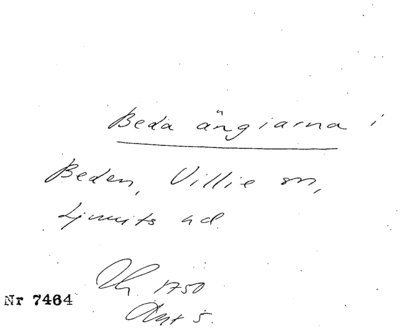 Beda ängiarna i
Beden, Villie sn,
Ljunits hd.
1750
Akt 5.
Nr 7464